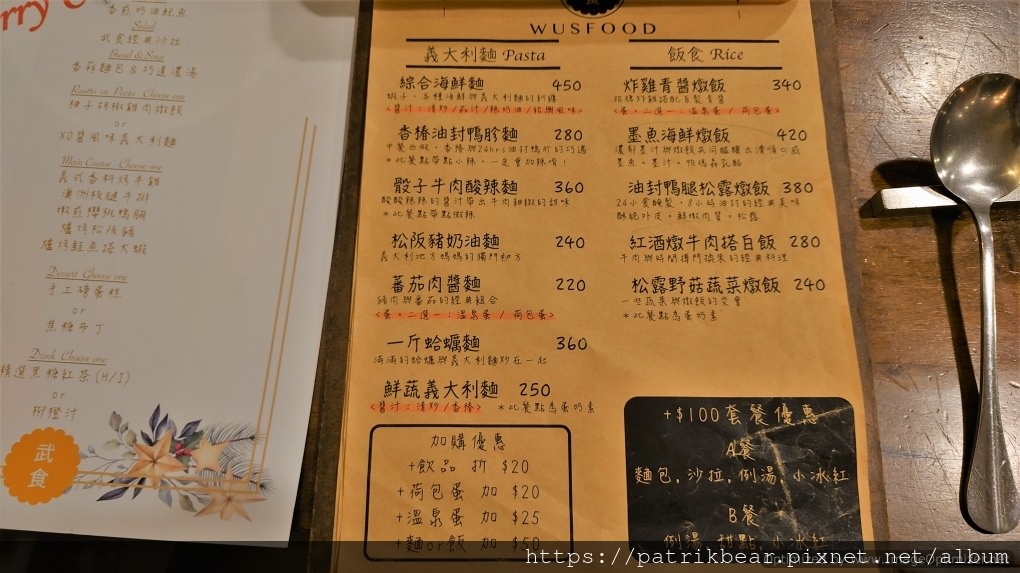 rry C
香煎奶油鮑魚
Salad
武食經典沙拉
Bread & Soup
香蒜麵包&巧達濃湯
Risotto or Pasta Choose one
柚子胡椒雞肉燉飯
or
XO醬風味義大利麵
Main Course Choose one
義式香料烤半雞
澳洲板腱牛排
嫩煎櫻桃鴨胸
爐烤松阪豬
爐烤鮭魚搭大蝦
Dessert Choose one
手工磚蛋糕
or
焦糖布丁
Drink Choose one
精選黑糖紅茶(H/I)
or
柳橙汁
武食
WUSFOOD
義大利麵 Pasta
綜合海鮮麵 450
蝦子、多種海鮮與義大利麵的刺練
<醬汁:清炒/茄汁/辣奶油/紹興風味>
香椿油封鴨胗麵 280
中餐西做,香椿與24hrs油封鴨胗的巧遇
*此餐點帶點小辣,一定會加辣唷!
骰子牛肉酸辣麵 360
酸酸辣辣的醬汁帶出牛肉細緻的甜味
*此餐點帶點微辣
松阪豬奶油麵 240
義大利地方媽媽的獨門秘方
蕃茄肉醬麵 220
豬肉與番茄的經典組合
<蛋,二選一:溫泉蛋 / 荷包蛋>
一斤蛤蠣麵 360
滿滿的蛤蠣與義大利麵炒在一起
鮮蔬義大利麵 250
<醬汁:清炒/香椿> *此餐點為蛋奶素
加購優惠
+飲品 折 $20
+荷包蛋 加 $20
+溫泉蛋 加 $25
+麵or飯 加 $50
飯食 Rice
炸雞青醬燉飯 340
招牌炸雞搭配自製青醬
<蛋,二選一:溫泉蛋 / 荷包蛋>
墨魚海鮮燉飯 420
濃郁墨汁與燉飯共同醞釀出滑順口感
墨魚。墨汁。帕瑪森乳酪
油封鴨腿松露燉飯 380
24小食醃製,8小時油封的經典美味
酥脆外皮。鮮嫩肉質。松露
紅酒燉牛肉搭白飯 280
牛肉與時間搏鬥換來的經典料理
松露野菇蔬菜燉飯 240
一些蔬菜與燉飯的交會
*此餐點為蛋奶素
+$100套餐優惠
A餐
麵包,沙拉,例湯,小冰紅
B餐
例湯,甜點,小冰紅
https://patrikbear.pixnet.net/album